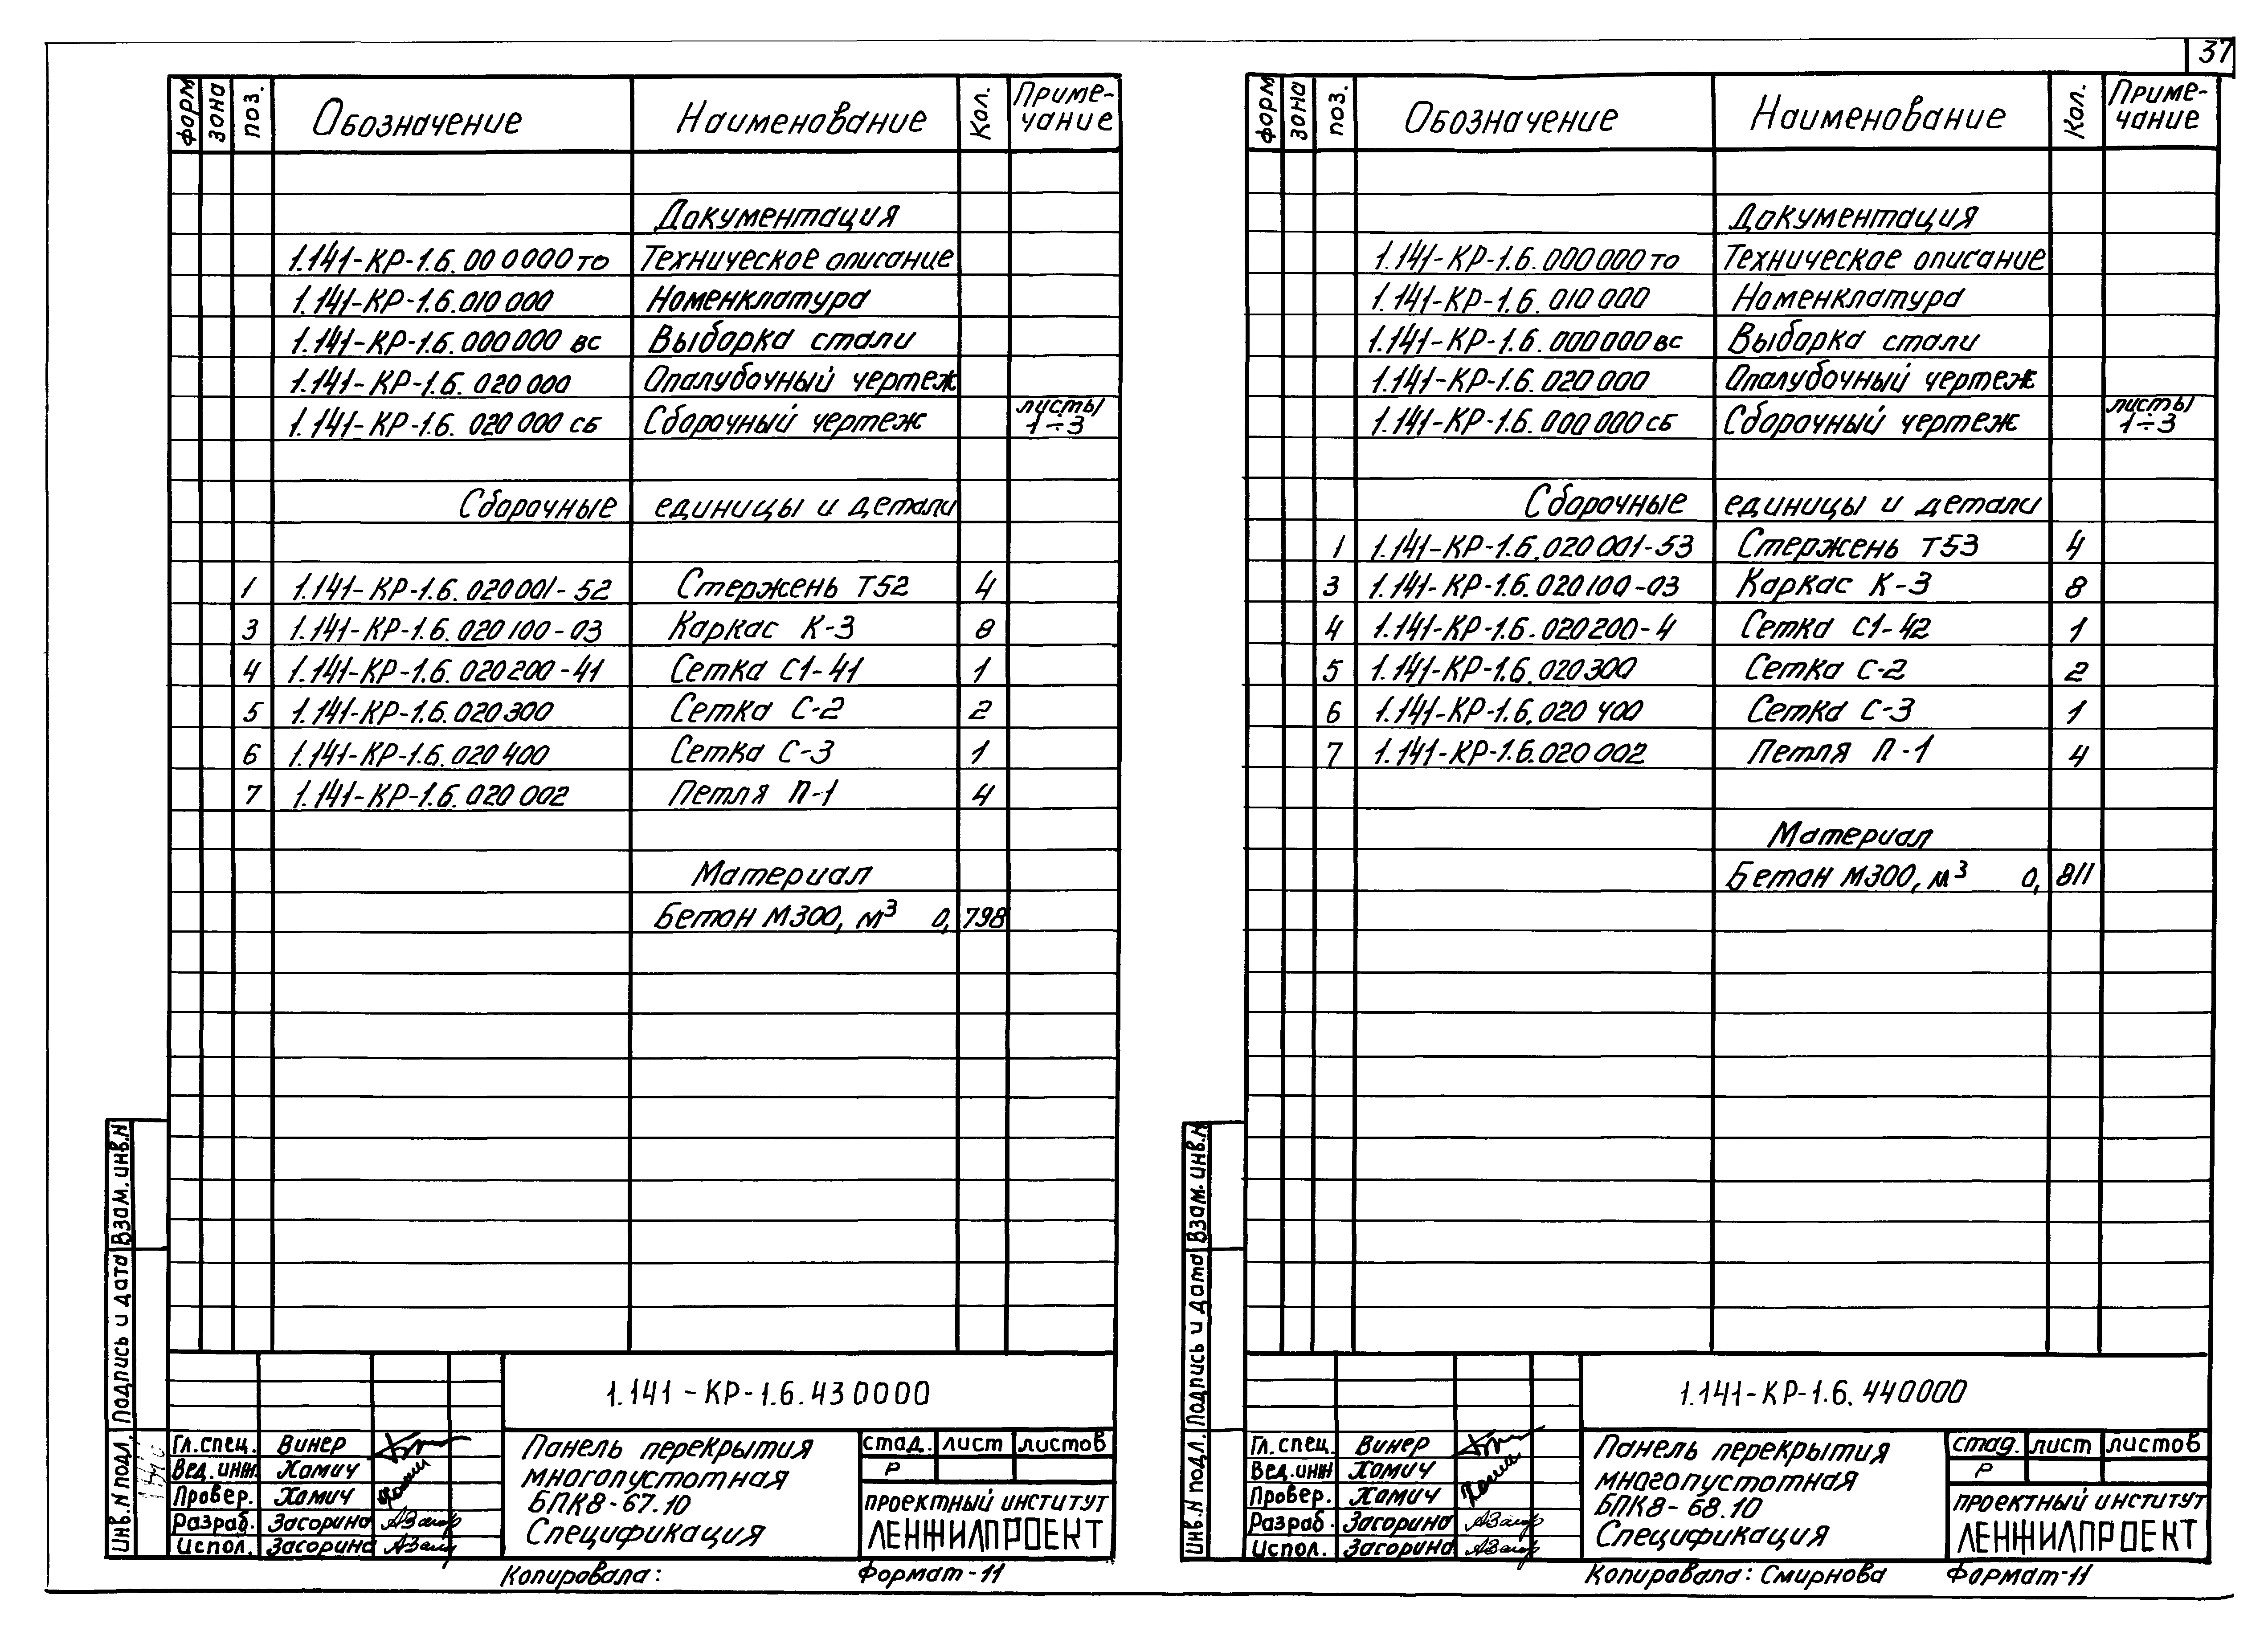 37
форм зона поз. Обозначение Наименование Кол. Приме-
чание
Документация
1.141-КР-1.6.000000 то Техническое описание
1.141-КР-1.6.010 000 Номенклатура
1.141-КР-1.6.000000 вс Выборка стали
1.141-КР-1.6.020 000 Опалубочный чертеж
1.141-КР-1.6.020 000 сб Сборочный чертеж листы
1÷3
Сборочные единицы и детали
1 1.141-КР-1.6.020001-52 Стержень Т52 4
3 1.141-КР-1.6.020100-03 Каркас К-3 8
4 1.141-КР-1.6.020200-41 Сетка С1-41 1
5 1.141-КР-1.6.020300 Сетка С-2 2
6 1.141-КР-1.6.020400 Сетка С-3 1
7 1.141-КР-1.6.020 002 Петля П-1 4
Материал
Бетон М300, м³ 0,798
Взам. инв.N
Подпись и дата
Инв.N подл.
1.141-КР-1.6.430000
Гл.спец. Винер
Вед.инж. Хамич
Провер. Хамич
Разраб. Засорина
Испол. Засорина
Панель перекрытия
многопустотная
БПК8-67.10
Спецификация
стад. лист листов
Р
ПРОЕКТНЫЙ ИНСТИТУТ
ЛЕНЖИЛПРОЕКТ
Копировала: Формат-11
форм зона поз. Обозначение Наименование Кол. Приме-
чание
Документация
1.141-КР-1.6.000 000 то Техническое описание
1.141-КР-1.6.010 000 Номенклатура
1.141-КР-1.6.000000 вс Выборка стали
1.141-КР-1.6.020 000 Опалубочный чертеж
1.141-КР-1.6.000 000 сб Сборочный чертеж листы
1÷3
Сборочные единицы и детали
1 1.141-КР-1.6.020 001-53 Стержень Т53 4
3 1.141-КР-1.6.020100-03 Каркас К-3 8
4 1.141-КР-1.6.020200-4 Сетка С1-42 1
5 1.141-КР-1.6.020300 Сетка С-2 2
6 1.141-КР-1.6.020 400 Сетка С-3 1
7 1.141-КР-1.6.020 002 Петля П-1 4
Материал
Бетон М300, м³ 0,811
Взам. инв.N
Подпись и дата
Инв.N подл.
1.141-КР-1.6.440000
Гл.спец. Винер
Вед.инж Хамич
Провер. Хамич
Разраб. Засорина
Испол. Засорина
Панель перекрытия
многопустотная
БПК8-68.10
Спецификация
стад. лист листов
Р
ПРОЕКТНЫЙ ИНСТИТУТ
ЛЕНЖИЛПРОЕКТ
Копировала: Смирнова Формат-11